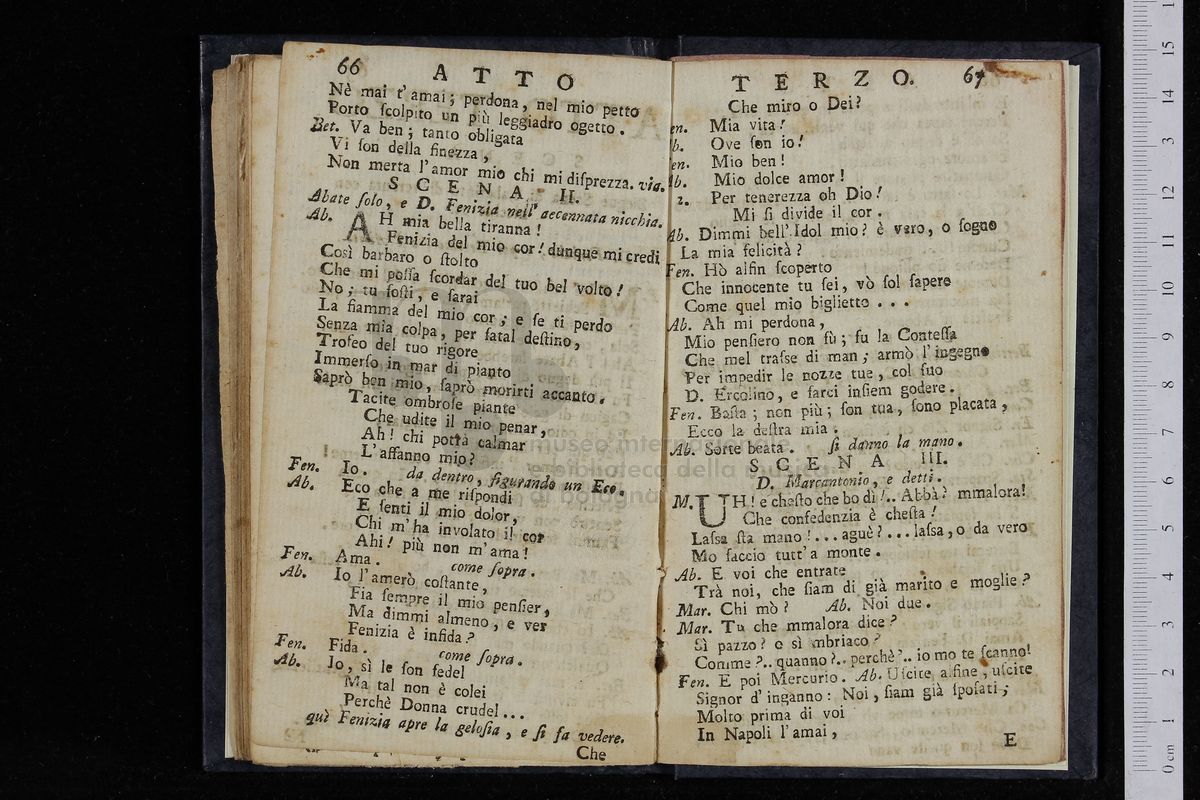 66 ATTO
Nè mai t'amai; perdona, nel mio petto
Porto ſcolpito un più leggiadro ogetto.
Bet. Va ben; tanto obligata
Vi ſon della finezza,
Non merta l'amor mio chi mi diſprezza. via.
SCENA II.
Abate ſolo, e D. Fenizia nell' aecennata nicchia.
Ab. AH mia bella tiranna!
Fenizia del mio cor! dunque mi credi
Così barbaro o ſtolto
Che mi poſſa ſcordar del tuo bel volto!
No; tu foſti, e ſarai
La fiamma del mio cor; e ſe ti perdo
Senza mia colpa, per fatal deſtino,
Trofeo del tuo rigore
Immerſo in mar di pianto
Saprò ben mio, ſaprò morirti accanto.
Tacite ombroſe piante
Che udite il mio penar,
Ah! chi pottà calmar
L'affanno mio?
Fen. Io. da dentro, figurando un Eco.
Ab. Eco che a me riſpondi
E ſenti il mio dolor,
Chi m'ha involato il cor
Ahi! più non m'ama!
Fen. Ama. come ſopra.
Ab. Io l'amerò coſtante,
Fia ſempre il mio penſier,
Ma dimmi almeno, e ver
Fenizia è infida?
Fen. Fida. come ſopra.
Ab. Io, sì le ſon fedel
Ma tal non è colei
Perchè Donna crudel...
què Fenizia apre la geloſia, e ſi fa vedere.
Che
TERZO. 67
Che miro o Dei?
en. Mia vita!
b. Ove ſon io!
en. Mio ben!
b. Mio dolce amor!
2. Per tenerezza oh Dio!
Mi ſi divide il cor.
Ab. Dimmi bell'Idol mio? è vero, o ſogno
La mia felicità?
Fen. Hò alfin ſcoperto
Che innocente tu ſei, vò ſol ſapere
Come quel mio biglietto...
Ab. Ah mi perdona,
Mio penſiero non fù; fu la Conteſſa
Che mel traſſe di man; armò l'ingegno
Per impedir le nozze tue, col ſuo
D. Ercolino, e farci inſiem godere.
Fen. Baſta; non più; ſon tua, ſono placata,
Ecco la deſtra mia.
Ab. Sorte beata. ſi danno la mano.
SCENA III.
D. Marcantonio, e detti.
M. UH! e cheſto che bo di!.. Abbà? mmalora!
Che confedenzia è cheſta!
Laſſa ſta mano!... aguè?... laſſa, o da vero
Mo faccio tutt'a monte.
Ab. E voi che entrate
Trà noi, che ſiam di già marito e moglie?
Mar. Chi mò? Ab. Noi due.
Mar. Tu che mmalora dice?
Sì pazzo? o sì mbriaco?
Comme?.. quanno?.. perchè?.. io mo te ſcanno!
Fen. E poi Mercurio. Ab. Uſcite alfine, uſcite
Signor d'inganno: Noi, ſiam già ſpoſati;
Molto prima di voi
In Napoli l'amai,
E
museo internazionale
e biblioteca della musica
di bologna
0 cm 1 2 3 4 5 6 7 8 9 10 11 12 13 14 15